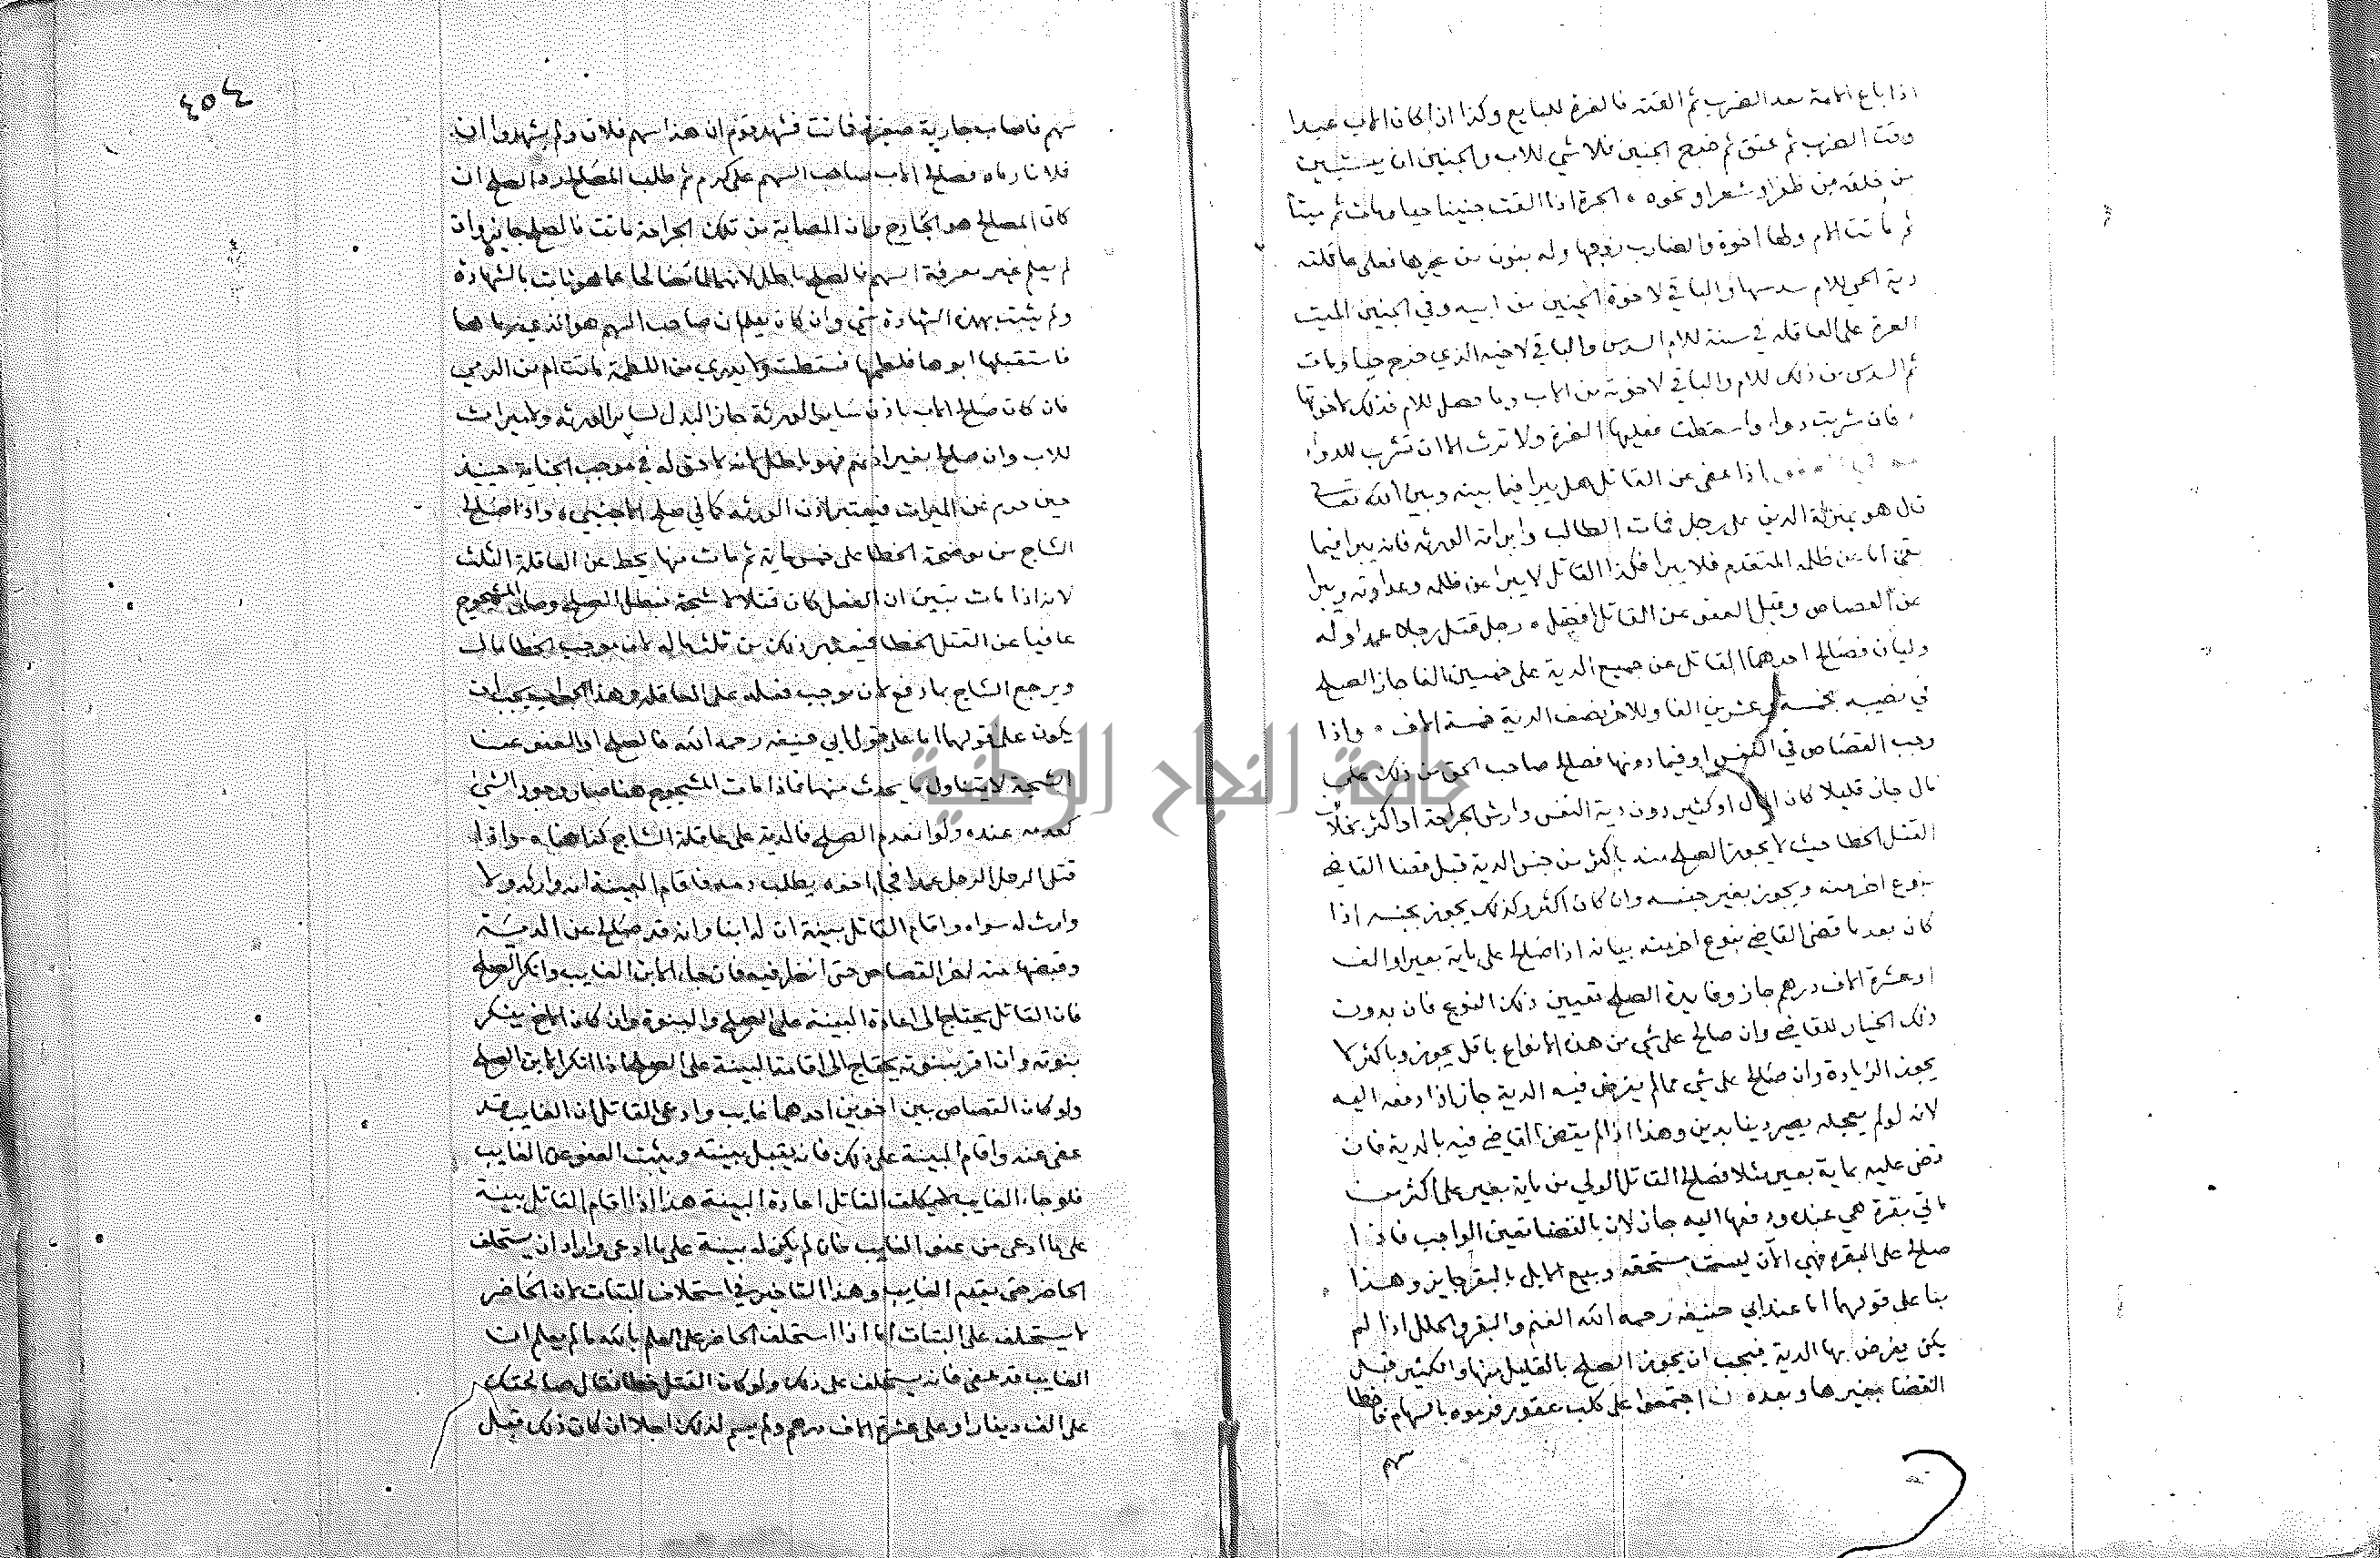 اذا باع الامة بعد الضرب ثم القته فالغرة للبايع وكذا اذا كان الاب عبدا
وقت الضرب ثم عتق ثم خرج الجنين فلا شي للاب والجنين ان يستبين
من خلقه من ظفر او شعر او نحوه الحرة اذا القت جنينا حيا ومات ثم ميتا
ثم ماتت الام ولها اخوة والضارب زوجها وله بنون من غيرها فعلى عاقلته
دية الحي للام سدسها والباقي لاخوة الجنين من ابيه وفي الجنين الميت
الغرة على العاقلة في سنة للام السدس والباقي لاخيه الذي خرج حيا ومات
ثم السدس من ذلك للام والباقي لاخوته من الاب وما حصل للام فذلك لاخوتها
فان شربت دواء واسقطت فعليها الغرة ولا ترث الا ان تشرب للدواء
اذا عفى عن القاتل هل يبرا فيما بينه وبين الله تعالى
قال هو بمنزلة الدين على رجل فمات الطالب وابراته الورثه فانه يبرا فيما
بقي اما عن ظلمه المتقدم فلا يبرا فكذا القاتل لا يبرا عن ظلمه وعداوته ويبرا
عن القصاص وقبل العفو عن القاتل افضل رجل قتل رجلا عمدا وله
وليان فصالح احدهما القاتل عن جميع الدية على خمسين الفا جاز الصلح
في نصيبه بخمسة وعشرين الفا وللاخر نصف الدية خمسة الاف واذا
وجب القصاص في النفس او فيما دونها فصالح صاحب الحق من ذلك على
مال جاز قليلا كان المال او كثير دون دية النفس وارش الجراحة او اكثر بخلاف
القتل الخطا حيث لا يجوز الصلح منه باكثر من جنس الدية قبل قضا القاضي
بنوع اخر منه ويجوز بغير جنسه وان كان اكثر وكذلك يجوز بجنسه اذا
كان بعد ما قضى القاضي بنوع اخر منه بيانه اذا صالح على ماية بعير او الف
او عشرة الاف درهم جاز وفايدة الصلح تعيين ذلك النوع فان بدون
ذلك الخيار للقاضي وان صالح على شي من هذه الانواع باقل يجوز وباكثر لا
يجوز الزيادة وان صالح على شي مما لم يفرض فيه الدية جاز اذا دفعه اليه
لانه لو لم يعجله يصير دينا بدين وهذا اذا لم يقض القاضي فيه بالدية فان
قضى عليه بماية بعير مثلا فصالح القاتل الولي من ماية بعير على اكثر من
ماتي بقرة هي عنده ودفعها اليه جاز لان بالقضا تعين الواجب فاذا
صالح على البقره فهي الان ليست مستحقه وبيع الابل بالبقر جايز وهذا
بنا على قولهما اما عند ابي حنيفه رحمه الله الغنم والبقر والحلل اذا لم
يكن يفرض بها الدية فيجب ان يجوز الصلح بالقليل منها والكثير قبل
القضا بغيرها وبعده اجتمعوا على كلب عقور فرموه بالسهام فاخطا
سهم
٤٥٤
سهم فاصاب جارية صغيرة فماتت فشهد قوم ان هذا سهم فلان ولم يشهدوا ان
فلانا رماه فصالح الاب صاحب السهم على كرم ثم طلب المصالح رد الصلح ان
كان المصالح هو الجارح وان المصابة من تلك الجراحة ماتت فالصلح جايز وان
لم يعلم غير معرفة السهم فالصلح باطل لانهما انما تصالحا عما هو ثابت بالشهادة
ولم يثبت بهذه الشهادة شي وان كان يعلم ان صاحب السهم هو الذي رماها
فاستقبلها ابوها فلطمها فسقطت ولا يدري من اللطمة ماتت ام من الرمي
فان كان صالح الاب باذن ساير الورثة جاز البدل لساير الورثه ولا ميراث
للاب وان صالح بغير اذنهم فهو باطل لانه لا حق له في موجب الجناية حينيذ
حين حرم عن الميراث فيعتبر اذن الورثه كما في صلح الاجنبي واذا صالح
الشاج من موضحة الخطا على خمس ماية ثم مات منها يحط عن العاقلة الثلث
لانه اذا مات تبين ان الفعل كان قتلا لا شجة فبطل الصلح وصار المشجوج
عافيا عن القتل الخطا فيعتبر ذلك من ثلث ماله لان موجب الخطا مال
ويرجع الشاج بما دفع لان موجب فعله على العاقلة وهذا الجواب يجب ان
يكون على قولهما اما على قول ابي حنيفه رحمه الله فالصلح او العفو عن
الشجة لا يتناول ما يحدث منها فاذا مات المشجوج هنا صار وجود الشي
كعدمه عنده ولو انعدم الصلح فالدية على عاقلة الشاج كذا هنا واذا
قتل الرجل الرجل عمدا فجاء اخوه يطلب دمه فاقام البينة انه وارثه ولا
وارث له سواه واقام القاتل بينة ان له ابنا وانه قد صالح عن الدية
وقبضها منه اخر القصاص حتى انظر فيه فان جاء الابن الغايب وانكر الصلح
فان القاتل يحتاج الى اعادة البينة على الصلح والبنوة وان كان الاخ ينكر
بنوته وان اقر ببنوته يحتاج الى اقامة البينة على الصلح اذا انكر الابن الصلح
ولو كان القصاص بين اخوين احدهما غايب وادعى القاتل ان الغايب قد
عفى عنه واقام البينة على ذلك فانه يقبل بينته ويثبت العفو عن الغايب
فلو جاء الغايب لا يكلف القاتل اعادة البينة هذا اذا اقام القاتل بينة
على ما ادعى من عفو الغايب فان لم يكن له بينة على ما ادعى واراد ان يستحلف
الحاضر حتى يقدم الغايب وهذا التاخير في استحلاف البتات لان الحاضر
لا يستحلف على البتات اما اذا استحلف الحاضر على العلم بالله ما لم يعلم ان
الغايب قد عفى فانه يستحلف على ذلك ولو كان القتل خطا فقال صالحتك
على الف دينار او على عشرة الاف درهم ولم يسم لذلك اجلا ان كان ذلك قبل
جامعة النجاح الوطنية